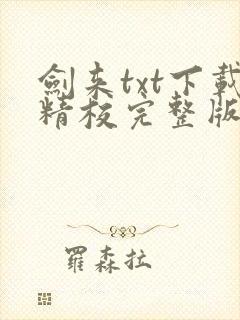 劍来txt下載
精校完整版
羅森拉